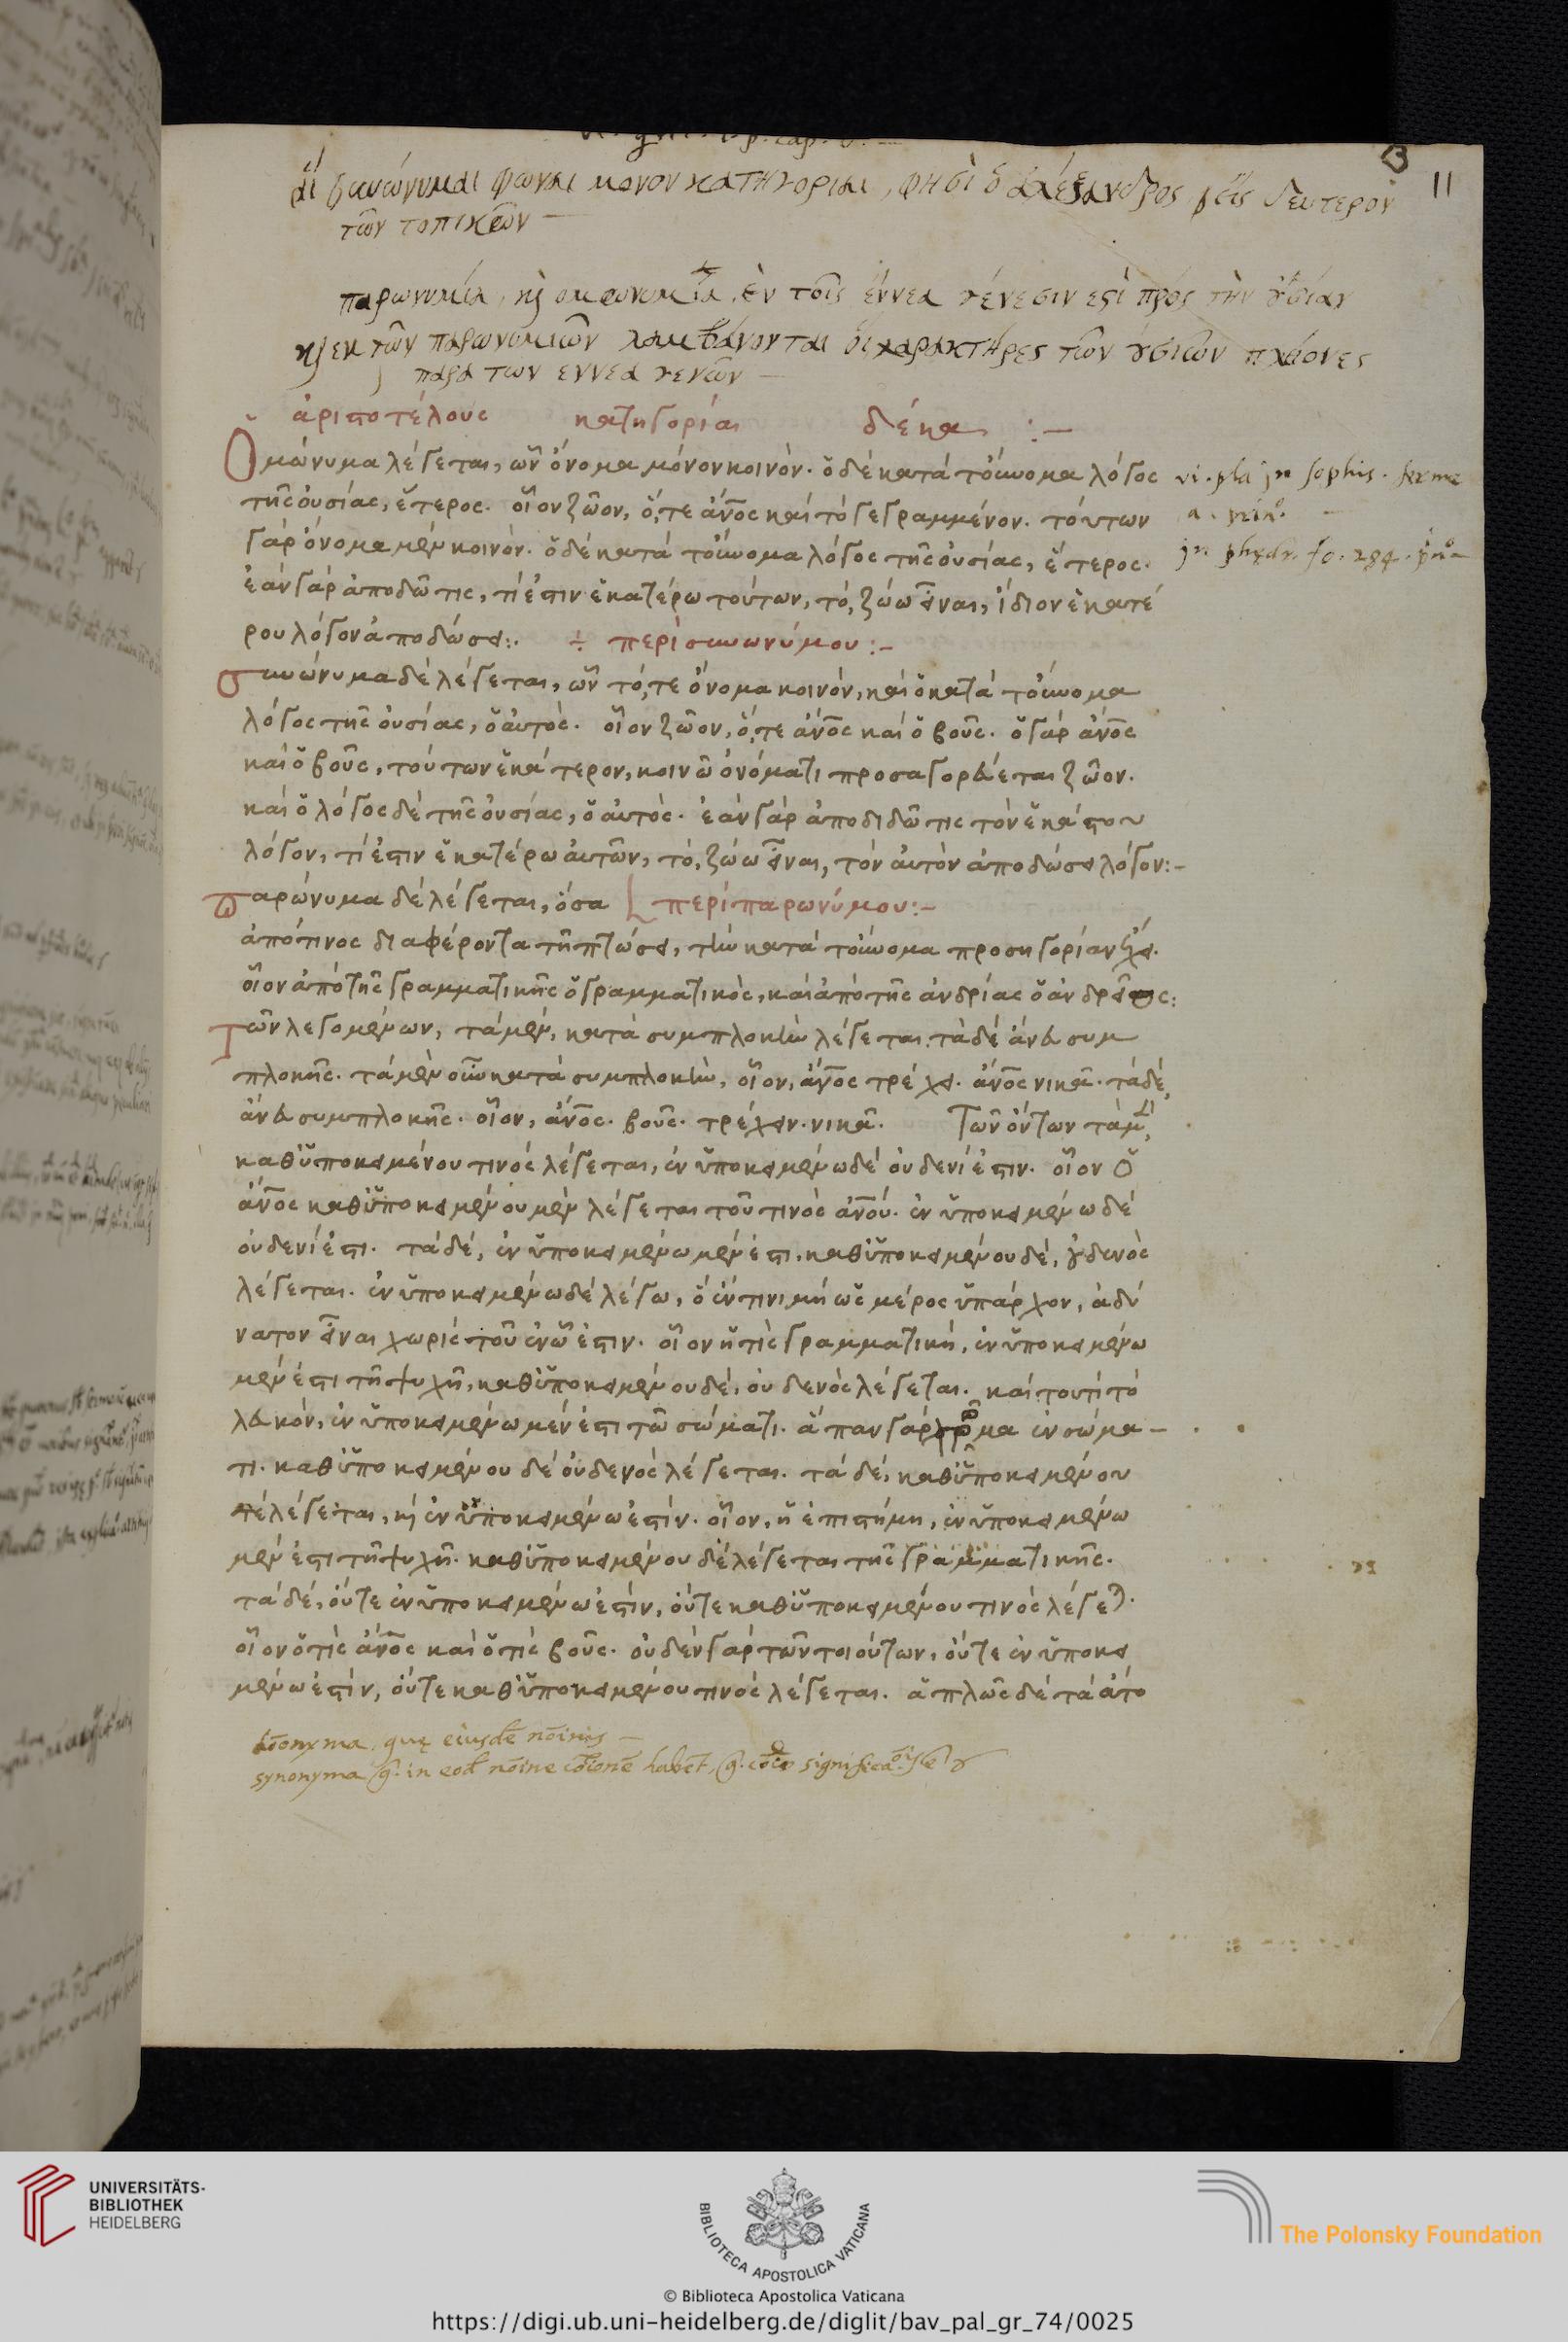 11
αἱ συνώνυμαι φωναὶ μόνον κατηγορίαι, φησὶ ὁ ἀλέξανδρος εἰς δεύτερον
τῶν τοπικῶν —
παρωνυμία, κ ομωνυμία, ἐν τοῖς ἐννέα γένεσιν εστὶ πρός τὴν ουσίαν
κ εκ τῶν παρωνυμιῶν λαμβάνονται οἱ χαρακτήρες τῶν ουσιῶν πλείονες
παρα των εννεα γενῶν —
ἀριστοτέλους κατηγορίαι δέκα :—
Ὁμώνυμα λέγεται, ὧν ὄνομα μόνον κοινὸν· ὁ δέ κατά τοὔνομα λόγος vi. pla in sophis.
τῆς οὐσίας, ἕτερος. οἷον ζῶον, ὅ,τε ἄνος καί τό γεγραμμένον. τόυτων
γάρ ὄνομα μὲν κοινὸν· ὁ δέ κατά τοὔνομα λόγος τῆς οὐσίας, ἕτερος. in phędr. fo. 284.
ἐάν γάρ ἀποδῶ τις, τί ἐστιν ἑκατέρω τούτων, τό, ζώω εἶναι, ἴδιον ἑκατέ
ρου λόγον ἀποδώσει:. ÷ περὶ συνωνύμου :-
συνώνυμα δέ λέγεται, ὧν τό,τε ὄνομα κοινόν, καί ὁ κατά τοὔνομα
λόγος τῆς οὐσίας, ὁ αὐτός. οἷον ζῶον, ὅ,τε ἄνος καί ὁ βοῦς. ὁ γάρ ἄνος
καί ὁ βοῦς, τούτων ἑκάτερον, κοινῶ ὀνόματι προσαγορεύεται ζῶον.
καί ὁ λόγος δέ τῆς οὐσίας, ὁ αὐτός. ἐάν γάρ ἀποδιδῶ τις τόν ἑκάστου
λόγον, τί ἐστιν ἑκατέρω αὐτῶν, τό, ζώω εἶναι, τόν αὐτόν ἀποδώσει λόγον:-
παρώνυμα δέ λέγεται, ὅσα περί παρωνύμου:-
ἀπό τινος διαφέροντα τῆ πτώσει, τὴν κατά τοὔνομα προσηγορίαν ἔχει.
οἷον ἀπό τῆς γραμματικῆς ὁ γραμματικός, καί ἀπό τῆς ἀνδρίας ὁ ἀνδρεῖος:
Τῶν λεγομένων, τά μὲν, κατά συμπλοκὴν λέγεται. τὰ δέ ἄνευ συμ
πλοκῆς. τά μὲν οὖν κατά συμπλοκὴν, οἷον, ἄνος τρέχει. ἄνος νικᾶ. τά δέ,
ἄνευ συμπλοκῆς. οἷον, ἄνος. βοῦς. τρέχειν. νικᾶ. Τῶν ὄντων τὰ μὲν,
καθ ὑποκειμένου τινός λέγεται, ἐν ὑποκειμένω δέ οὐδενί ἐστιν. οἷον ὁ
ἄνος καθ ὑποκειμένου μὲν λέγεται τοῦ τινός ἀνου. ἐν ὑποκειμένω δέ
οὐδενί ἐστι. τά δέ, ἐν ὑποκειμένω μὲν ἐστι. καθ ὑποκειμένου δέ, ουδενός
λέγεται. ἐν ὑποκειμένω δέ λέγω, ὅ ἔν τινι μή ὡς μέρος ὑπάρχον, ἀδύ
νατον εἶναι χωρίς τοῦ ἐν ὧ ἐστιν. οἷον ἡ τὶς γραμματική, ἐν ὑποκειμένω
μὲν ἐστι τῆ ψυχῆ, καθ ὑποκειμένου δέ, οὐδενός λέγεται. καί τουτί τό
λευκόν, ἐν ὑποκειμένω μέν ἐστι τῶ σώματι. ἅπαν γάρ χρῶμα ἐν σώμα-
τι. καθ ὑποκειμένου δέ οὐδενός λέγεται. τά δέ, καθ ὑποκειμένου
τέ λέγεται, κ ἐν ὑποκειμένω ἐστίν. οἷον, ἡ ἐπιστήμη, ἐν ὑποκειμένω
μὲν ἐστι τῆ ψυχῆ. καθ ὑποκειμένου δέ λέγεται τῆς γραμματικῆς.
τά δέ, ὄυτε ἐν ὑποκειμένω ἐστίν, ὄυτε καθ ὑποκειμένου τινός λέγεται.
οἷον ὁ τὶς ἄνος καί ὁ τὶς βοῦς. οὐδέν γάρ τῶν τοιούτων, ὄυτε ἐν ὑποκει
μένω ἐστίν, ὄυτε καθ ὑποκειμένου τινός λέγεται. ἁπλῶς δέ τά ἄτο
quę eiusdē nōinis —
synonyma in eod nōine habēt
UNIVERSITÄTS-
BIBLIOTHEK
HEIDELBERG
BIBLIOTECA APOSTOLICA VATICANA
The Polonsky Foundation
© Biblioteca Apostolica Vaticana
https://digi.ub.uni-heidelberg.de/diglit/bav_pal_gr_74/0025